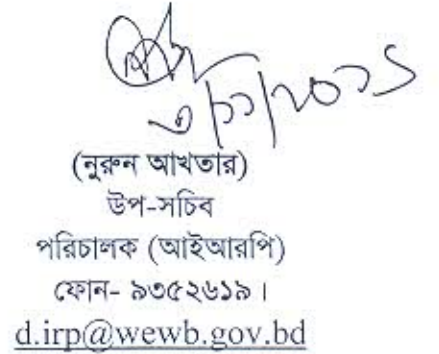 ৩/১১/২০২১
(নুরুন আখতার)
উপ-সচিব
পরিচালক (আইআরপি)
ফোন- ৯৩৫২৬১৯।
d.irp@wewb.gov.bd